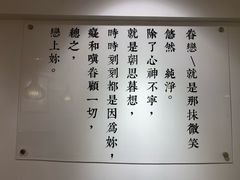 眷戀\就是那抹微笑
悠然 純淨。
除了心神不寧，
就是朝思暮想，
時時刻刻都是因為妳，
癡和嘆眷顧一切，
總之，
戀上妳。